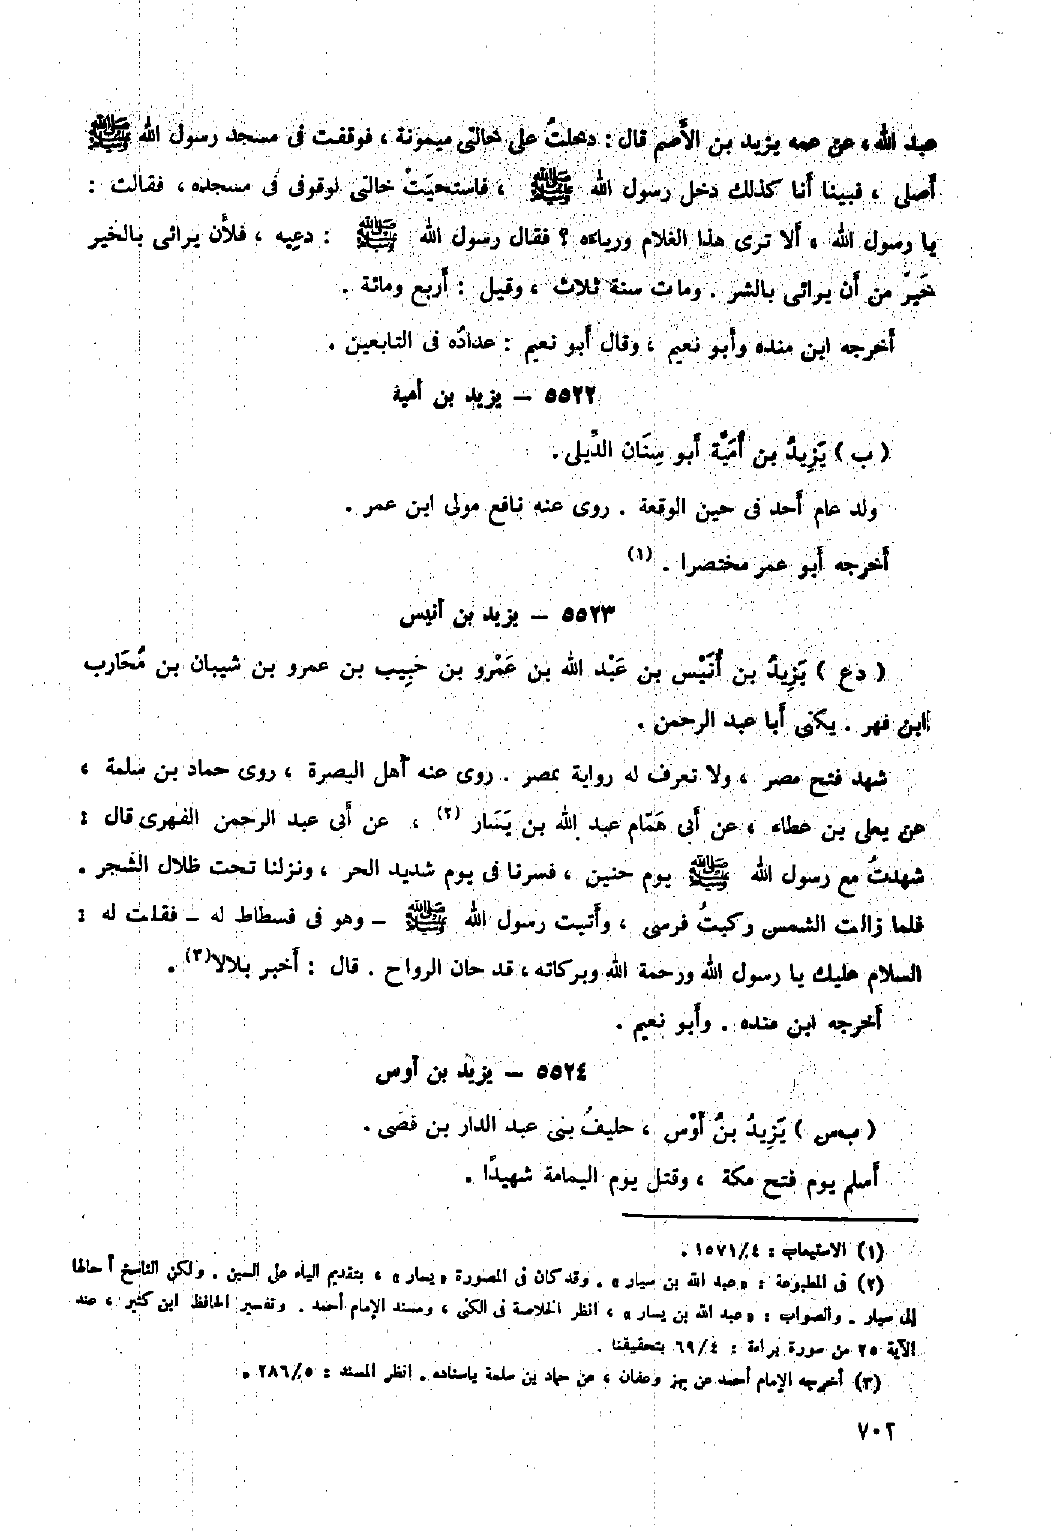 عبد الله، عن عمه يزيد بن الأصم قال : دخلتُ على خالتى ميمونة ، فوقفت فى مسجد رسول الله ﷺ
أصلى ، فبينا أنا كذلك دخل رسول الله ﷺ ، فاستحيَتْ خالتى لوقوفى فى مسجده ، فقالت :
يا رسول الله ، ألا ترى هذا الغلام ورياءه ؟ فقال رسول الله ﷺ : دعيه ، فلأن يرائى بالخير
خَيرٌ من أن يرائى بالشر . ومات سنة ثلاث ، وقيل : أربع ومائة .
أخرجه ابن منده وأبو نعيم ، وقال أبو نعيم : عدادُه فى التابعين .
٥٥٢٢ – يزيد بن أمية
( ب ) يَزِيدُ بن أُمَيَّة أبو سِنَان الدِّيلى .
ولد عام أحد فى حين الوقعة . روى عنه نافع مولى ابن عمر .
أخرجه أبو عمر مختصرا . (١)
٥٥٢٣ – يزيد بن أنيس
( دع ) يَزِيدُ بن أُنَيْس بن عَبْد الله بن عَمْرو بن حَبِيب بن عمرو بن شيبان بن مُحَارب
ابن فهر . يكنى أبا عبد الرحمن .
شهد فتح مصر ، ولا تعرف له رواية بمصر . روى عنه أهل البصرة ، روى حماد بن سلمة ،
عن يعلى بن عطاء ، عن أبى هَمَّام عبد الله بن يَسَار (٢) ، عن أبى عبد الرحمن الفهرى قال :
شهدتُ مع رسول الله ﷺ يوم حنين ، فسرنا فى يوم شديد الحر ، ونزلنا تحت ظلال الشجر .
فلما زالت الشمس ركبتُ فرسى ، وأتيت رسول الله ﷺ – وهو فى فسطاط له – فقلت له :
السلام عليك يا رسول الله ورحمة الله وبركاته ، قد حان الرواح . قال : أخبر بلالا(٣) .
أخرجه ابن منده . وأبو نعيم .
٥٥٢٤ – يزيد بن أوس
( ب س ) يَزِيدُ بنُ أَوْس ، حليفُ بنى عبد الدار بن قصى .
أسلم يوم فتح مكة ، وقتل يوم اليمامة شهيدًا .
(١) الاستيعاب : ١٥٧١/٤ .
(٢) فى المطبوعة : «عبد الله بن سيار» . وقد كان فى المصورة «يسار» ، بتقديم الياء على السين . ولكن الناسخ أحالها
إلى سيار . والصواب : «عبد الله بن يسار» ، انظر الخلاصة فى الكنى ، ومسند الإمام أحمد . وتفسير الحافظ ابن كثير ، عند
الآية ٢٥ من سورة براءة : ٦٩/٤ بتحقيقنا .
(٣) أخرجه الإمام أحمد عن بهز وعفان ، عن حماد بن سلمة بإسناده . انظر المسند : ٢٨٦/٥ .
٧٠٢